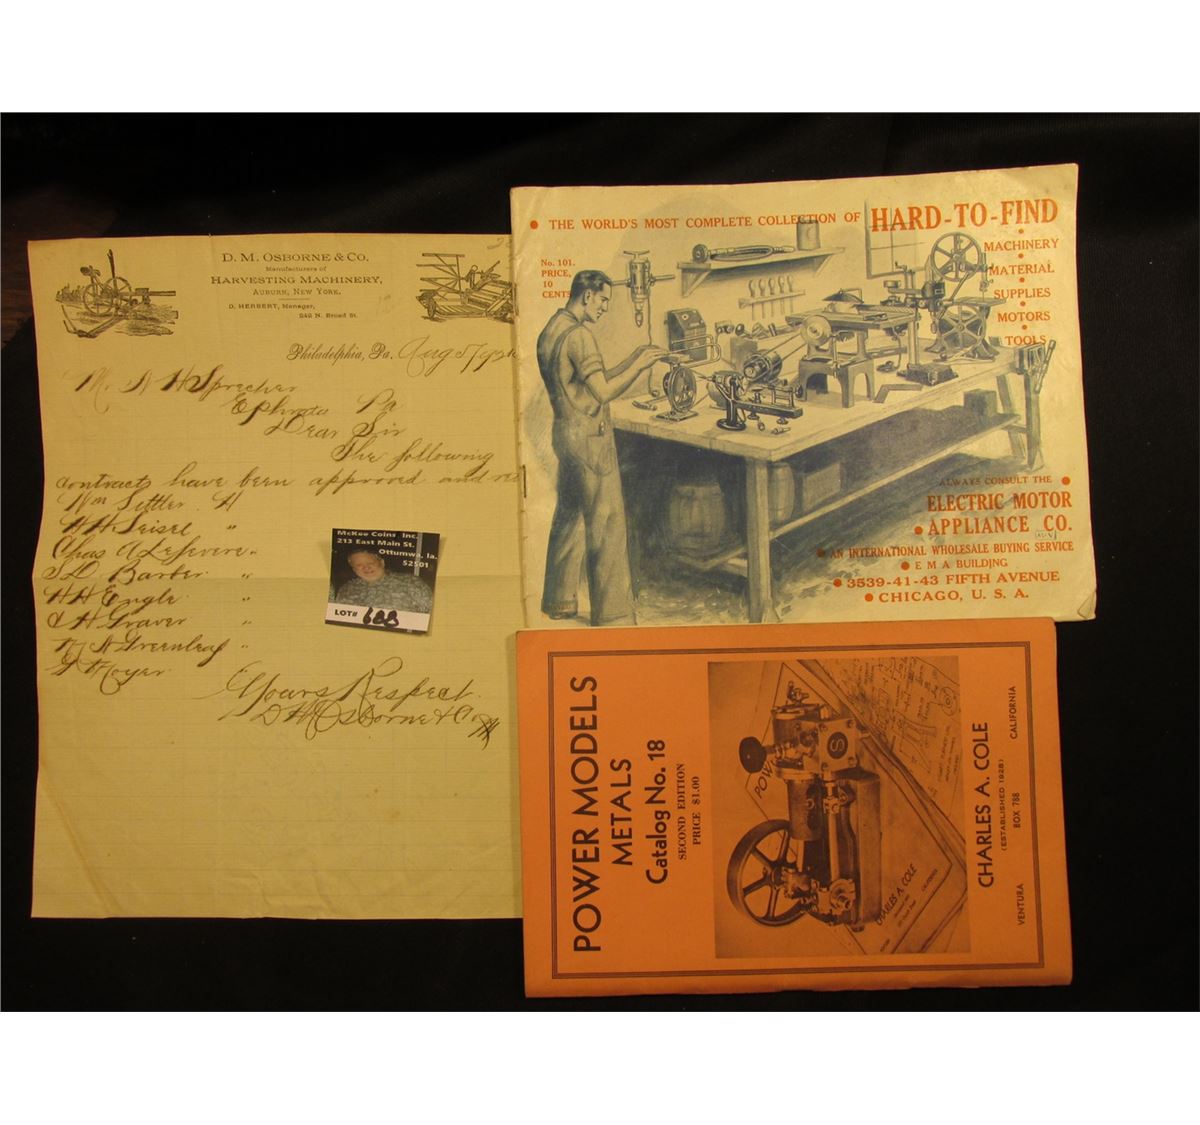 D. M. OSBORNE & CO.
Manufacturers of
HARVESTING MACHINERY,
AUBURN, NEW YORK.
D. HERBERT, Manager,
242 N. Broad St.
Philadelphia, Pa. Aug
Mr. A H Sprecher
Ephrata Pa
Dear Sir
The following
contracts have been approved and
Wm Settler
H H Seisel "
Chas A Lefevere "
S D Barber "
H H Engle "
H Graver "
Greenleaf "
Moyer
Yours Respect.
D M Osborne & Co
McKee Coins Inc.
213 East Main St.
Ottumwa, Ia.
52501
LOT# 688
THE WORLD'S MOST COMPLETE COLLECTION OF HARD-TO-FIND
No. 101.
PRICE,
10
CENTS
• MACHINERY
• MATERIAL
• SUPPLIES
• MOTORS
• TOOLS
ALWAYS CONSULT THE •
ELECTRIC MOTOR
• APPLIANCE CO.
• AN INTERNATIONAL WHOLESALE BUYING SERVICE
• E M A BUILDING
• 3539-41-43 FIFTH AVENUE
• CHICAGO, U. S. A.
POWER MODELS
METALS
Catalog No. 18
SECOND EDITION
PRICE $1.00
POW
S
CHARLES A. COLE
CHARLES A. COLE
(ESTABLISHED 1928)
BOX 788
VENTURA CALIFORNIA